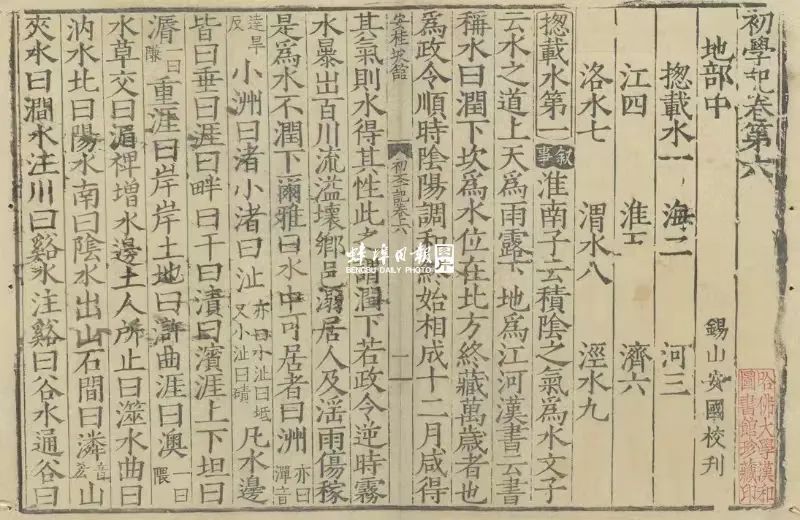 初學記卷第六
地部中　錫山安國校刋
哈佛大學漢和
圖書館珍藏印
揔載水一　海二　河三
江四　淮五　濟六
洛水七　渭水八　涇水九
揔載水第一 敘事 淮南子云積陰之氣爲水文子
云水之道上天爲雨露下地爲江河漢書云書
稱水曰潤下坎爲水位在北方終藏萬歲者也
爲政令順時陰陽調和終始相成十二月咸得
安桂坡館　初學記卷六　一
其氣則水得其性此之謂潤下若政令逆時霧
水暴出百川流溢壞鄉邑溺居人及淫雨傷稼
是爲水不潤下爾雅曰水中可居者曰洲 亦曰潬音
達旱反 小洲曰渚小渚曰沚 亦曰小沚曰坻又小沚曰磧 凡水邊
皆曰垂曰涯曰畔曰干曰瀆曰濱涯上下坦曰
漘 一曰隒 重涯曰岸岸土地曰滸曲涯曰澳 一曰隈
水草交曰湄裨增水邊土人所止曰澨水曲曰
汭水北曰陽水南曰陰水出山石間曰潾 山
夾水曰澗水注川曰谿水注谿曰谷水通谷曰
蚌埠日報圖片
BENGBU DAILY PHOTO